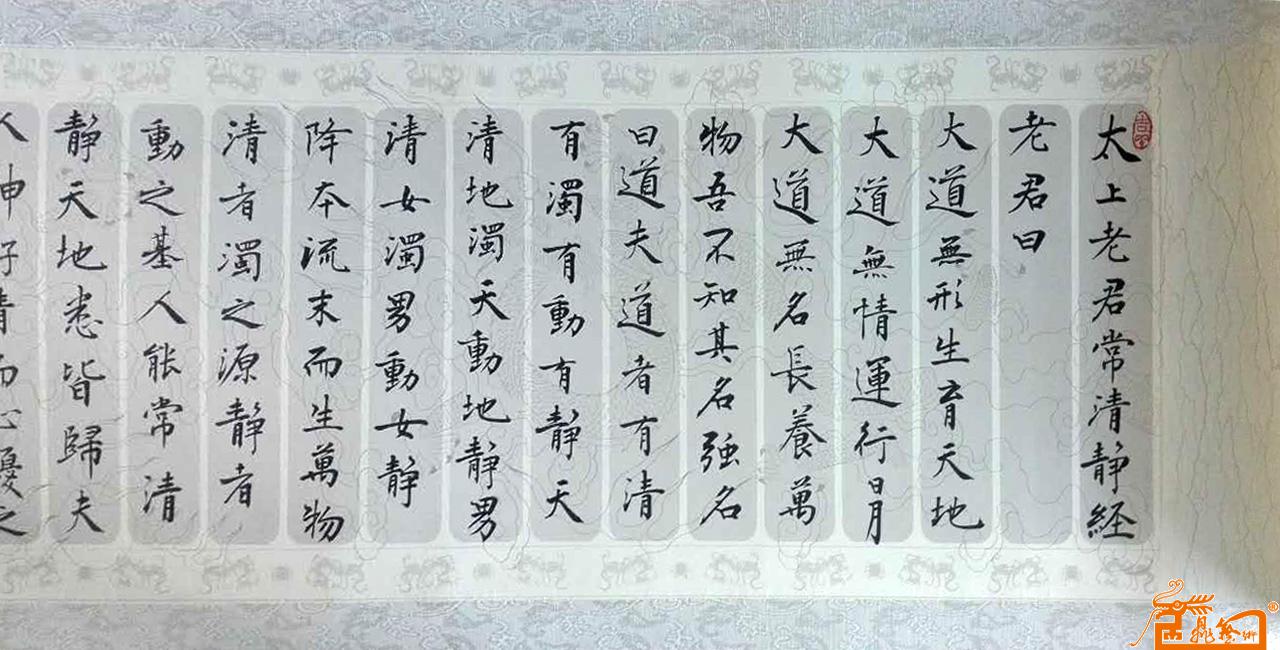 太上老君常清靜経
老君曰
大道無形生育天地
大道無情運行日月
大道無名長養萬
物吾不知其名強名
曰道夫道者有清
有濁有動有靜天
清地濁天動地靜男
清女濁男動女靜
降本流末而生萬物
清者濁之源靜者
動之基人能常清
靜天地悉皆歸夫
人神好清而心擾之